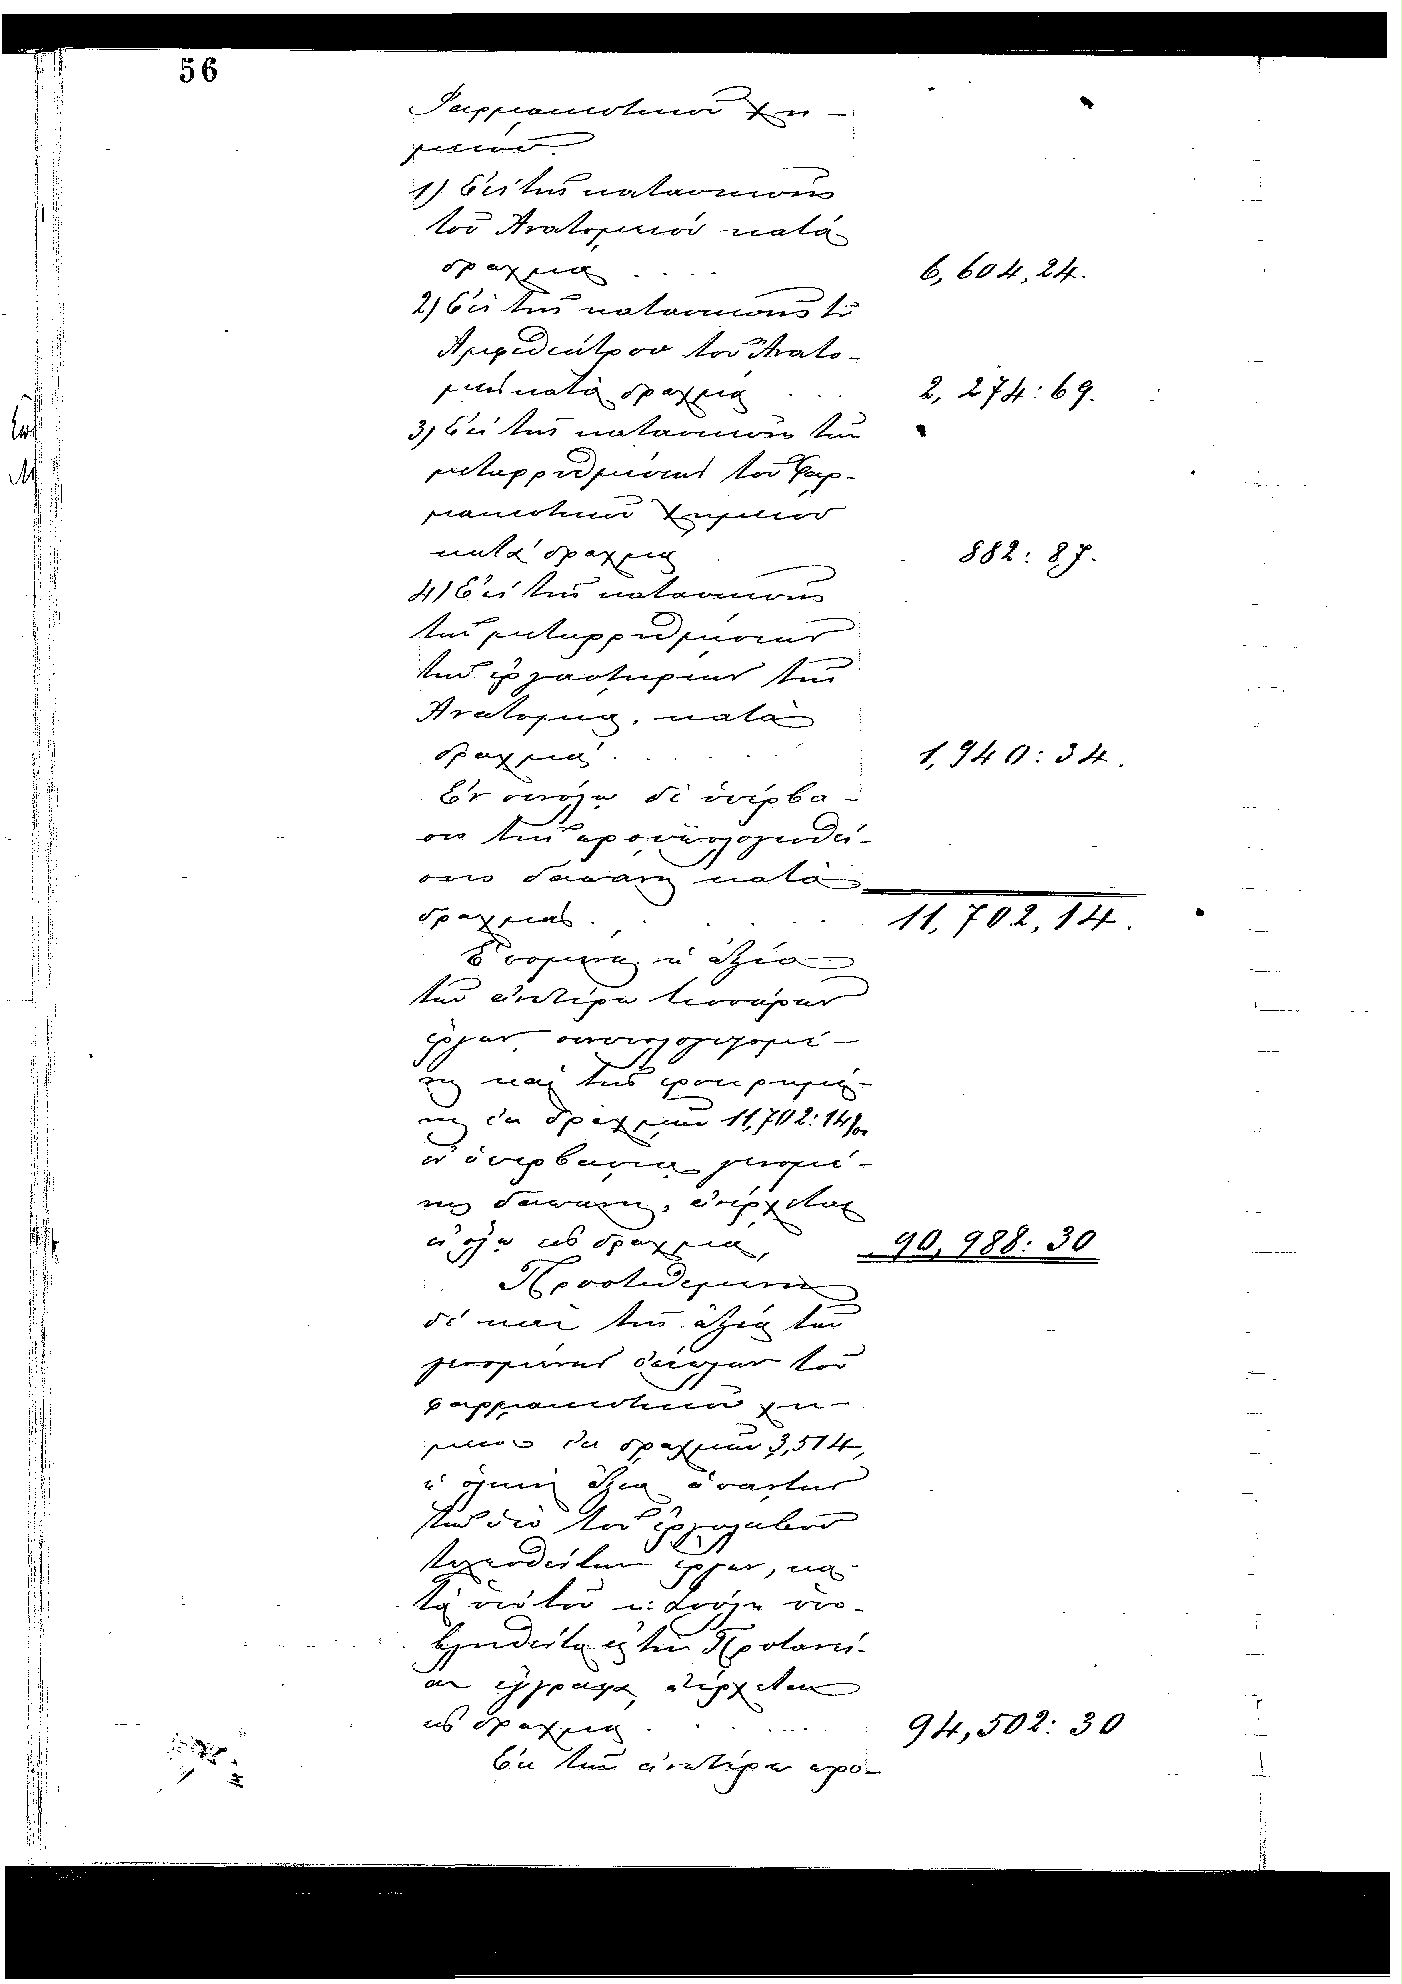 56
Φαρμακευτικοῦ Χη-
μείου.
1) Ἐπὶ τῆς κατασκευῆς
τοῦ Ἀνατομείου κατὰ
δραχμὰς .... 6,604,24.
2) Ἐπὶ τῆς κατασκευῆς τοῦ
Ἀμφιθεάτρου τοῦ Ἀνατο-
μείου κατὰ δραχμὰς ... 2,274:69.
3) Ἐπὶ τῆς κατασκευῆς τῶν
μεταρρυθμίσεων τοῦ Φαρ-
μακευτικοῦ Χημείου
κατὰ δραχμὰς 882:87.
4) Ἐπὶ τῆς κατασκευῆς
τῶν μεταρρυθμίσεων
τῶν ἐργαστηρίων τῆς
Ἀνατομίας, κατὰ
δραχμὰς ..... 1,940:34.
Ἐν συνόλῳ δὲ ὑπέρβα-
σις τῆς προϋπολογισθεί-
σης δαπάνης κατὰ
δραχμὰς .... 11,702,14.
Ἑπομένως ἡ ἀξία
τῶν ἀνωτέρω τεσσάρων
ἔργων, συνυπολογιζομέ-
νης καὶ τῆς προειρημέ-
νης ἐκ δραχμῶν 11,702:14/00
καθ' ὑπέρβασιν γενομέ-
νης δαπάνης, ἀνέρχεται
ἐν ὅλῳ εἰς δραχμὰς, 90,988:30
Προστιθεμένης
δὲ καὶ τῆς ἀξίας τῶν
γενομένων ἐπίπλων τοῦ
φαρμακευτικοῦ χη-
μείου ἐκ δραχμῶν 3,514,
ἡ ὁλικὴ ἀξία ἁπάντων
τῶν ὑπὸ τοῦ ἐργολάβου
ἐκτελεσθέντων ἔργων, κα-
τὰ τὰ ὑπὸ τοῦ κ: ὑπο-
βληθέντα εἰς τὴν Πρυτανεί-
αν ἔγγραφα, ἀνέρχεται
εἰς δραχμὰς ..... 94,502:30
Ἐκ τῶν ἀνωτέρω προ-